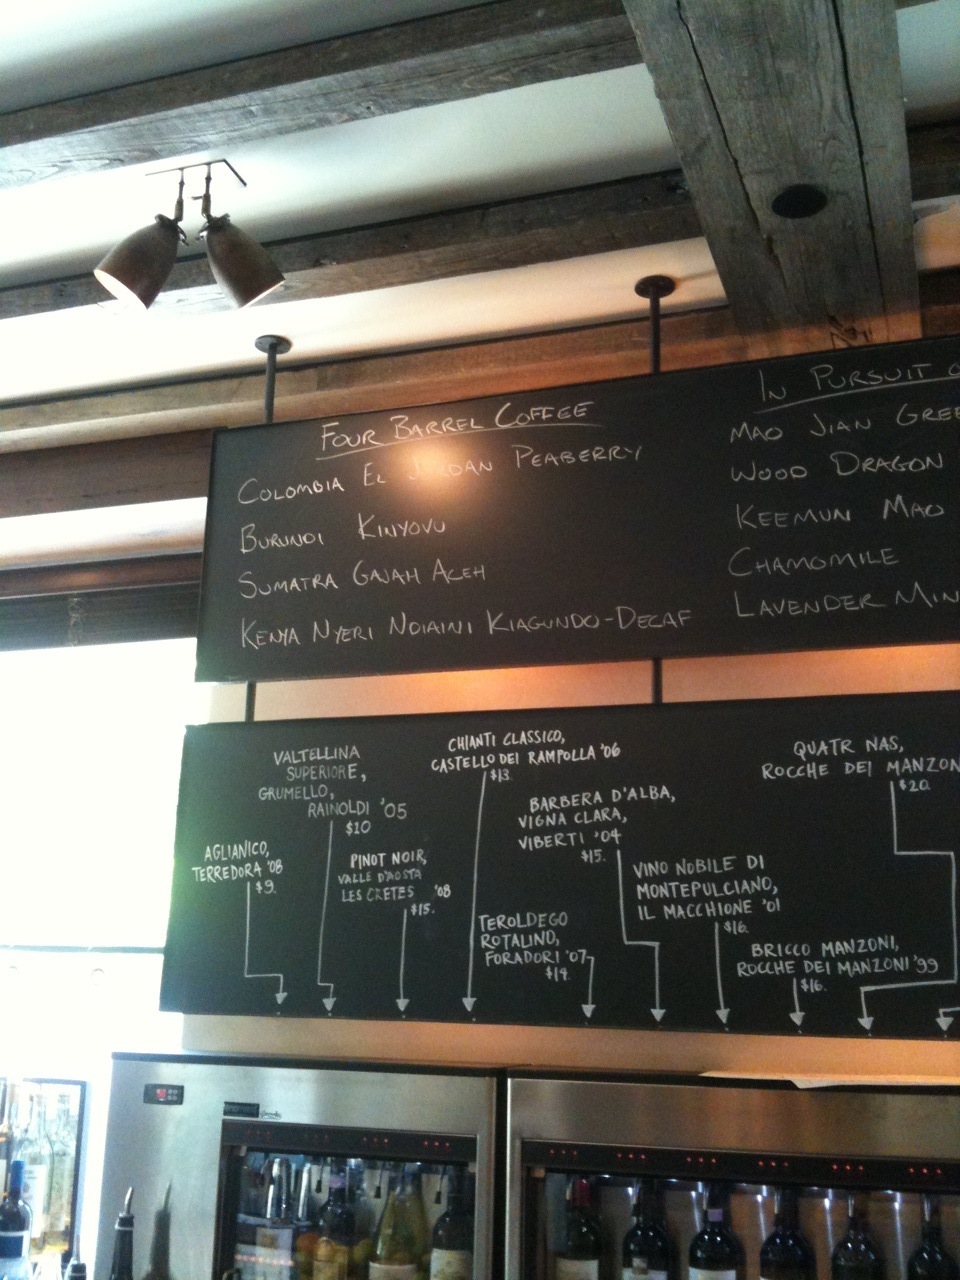 FOUR BARREL COFFEE
COLOMBIA EL JORDAN PEABERRY
BURUNDI KINYOVU
SUMATRA GAJAH ACEH
KENYA NYERI NDIAINI KIAGUNDO-DECAF
IN PURSUIT O
MAO JIAN GREE
WOOD DRAGON
KEEMUN MAO
CHAMOMILE
LAVENDER MIN
AGLIANICO,
TERREDORA '08
$9.
VALTELLINA
SUPERIORE,
GRUMELLO,
RAINOLDI '05
$10
PINOT NOIR,
VALLE D'AOSTA
LES CRETES '08
$15.
CHIANTI CLASSICO,
CASTELLO DEI RAMPOLLA '06
$13.
TEROLDEGO
ROTALINO,
FORADORI '07
$14.
BARBERA D'ALBA,
VIGNA CLARA,
VIBERTI '04
$15.
VINO NOBILE DI
MONTEPULCIANO,
IL MACCHIONE '01
$16.
BRICCO MANZONI,
ROCCHE DEI MANZONI '99
$16.
QUATR NAS,
ROCCHE DEI MANZON
$20.